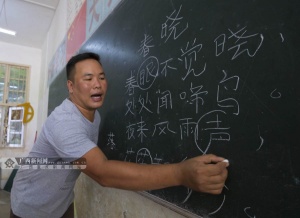 春晓
春眠不觉晓
处处闻啼鸟
夜来风雨声
花落
广西新闻网